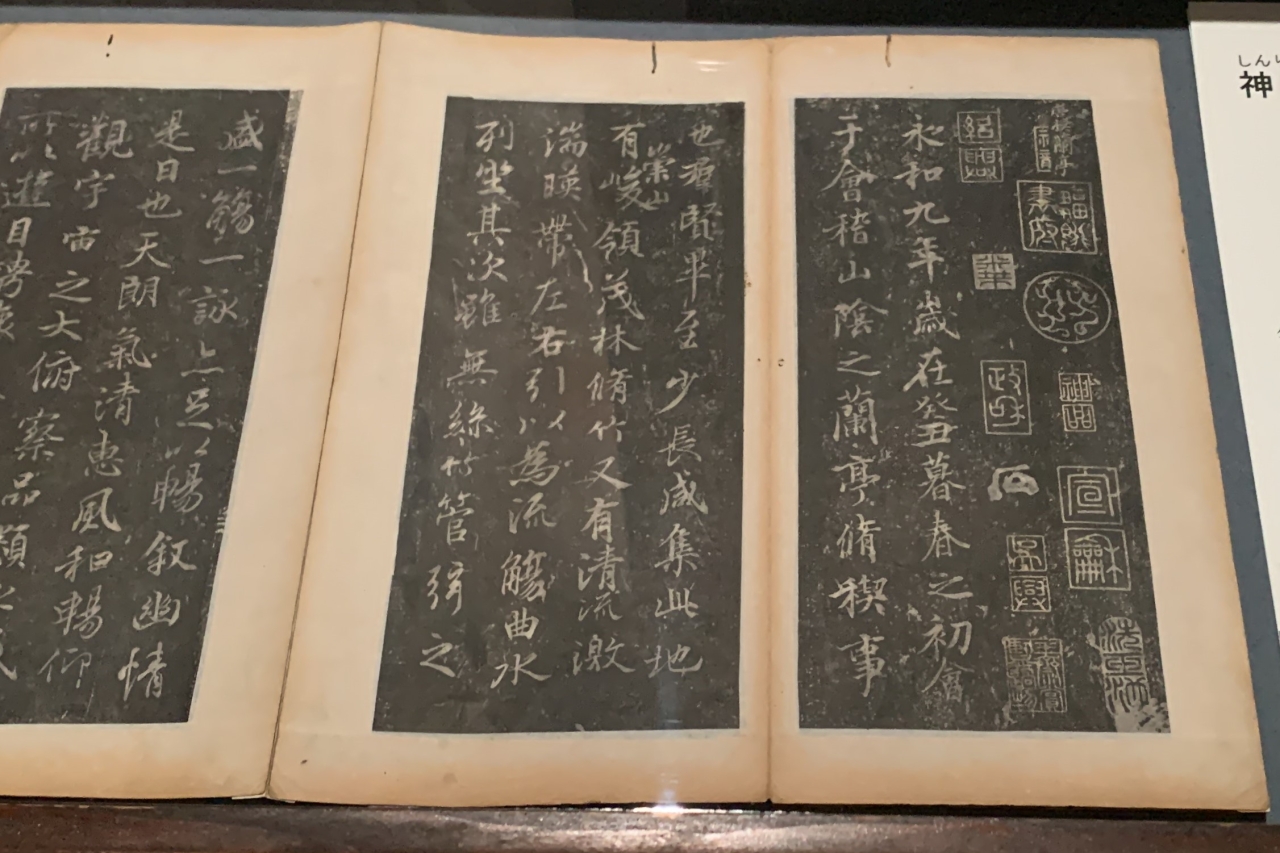 しん
神
唐摸蘭亭
神品
政和
宣龢
紹興
永和九年歲在癸丑暮春之初會
于會稽山陰之蘭亭脩稧事
也羣賢畢至少長咸集此地
有崇山峻領茂林脩竹又有清流激
湍暎帶左右引以為流觴曲水
列坐其次雖無絲竹管弦之
盛一觴一詠亦足以暢叙幽情
是日也天朗氣清惠風和暢仰
觀宇宙之大俯察品類之
所以遊目騁懷